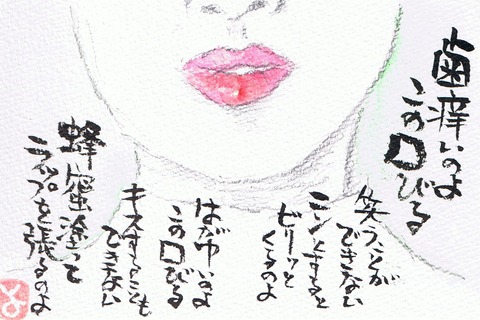 歯痒いのよ
この口びる
笑うことが
できない
ニッとすると
ビリッと
くるのよ
はがゆいのよ
この口びる
キスすることも
できない
蜂蜜塗って
ラップを張るのよ